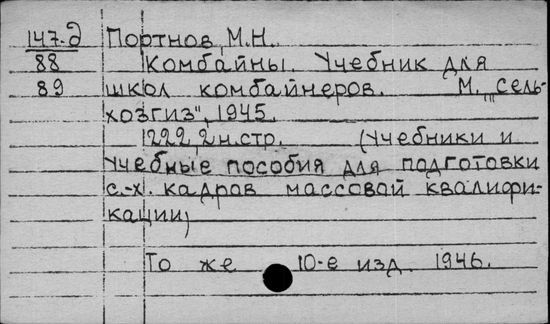 147-д Портнов, М.Н.
88 Комбайны. Учебник для
89 школ комбайнеров. М., „Сель-
хозгиз", 1945.
222, 2 н.стр. (Учебники и
учебные пособия для подготовки
с.-х. кадров массовой квалифи-
кации)
То же 10-е изд. 1946.